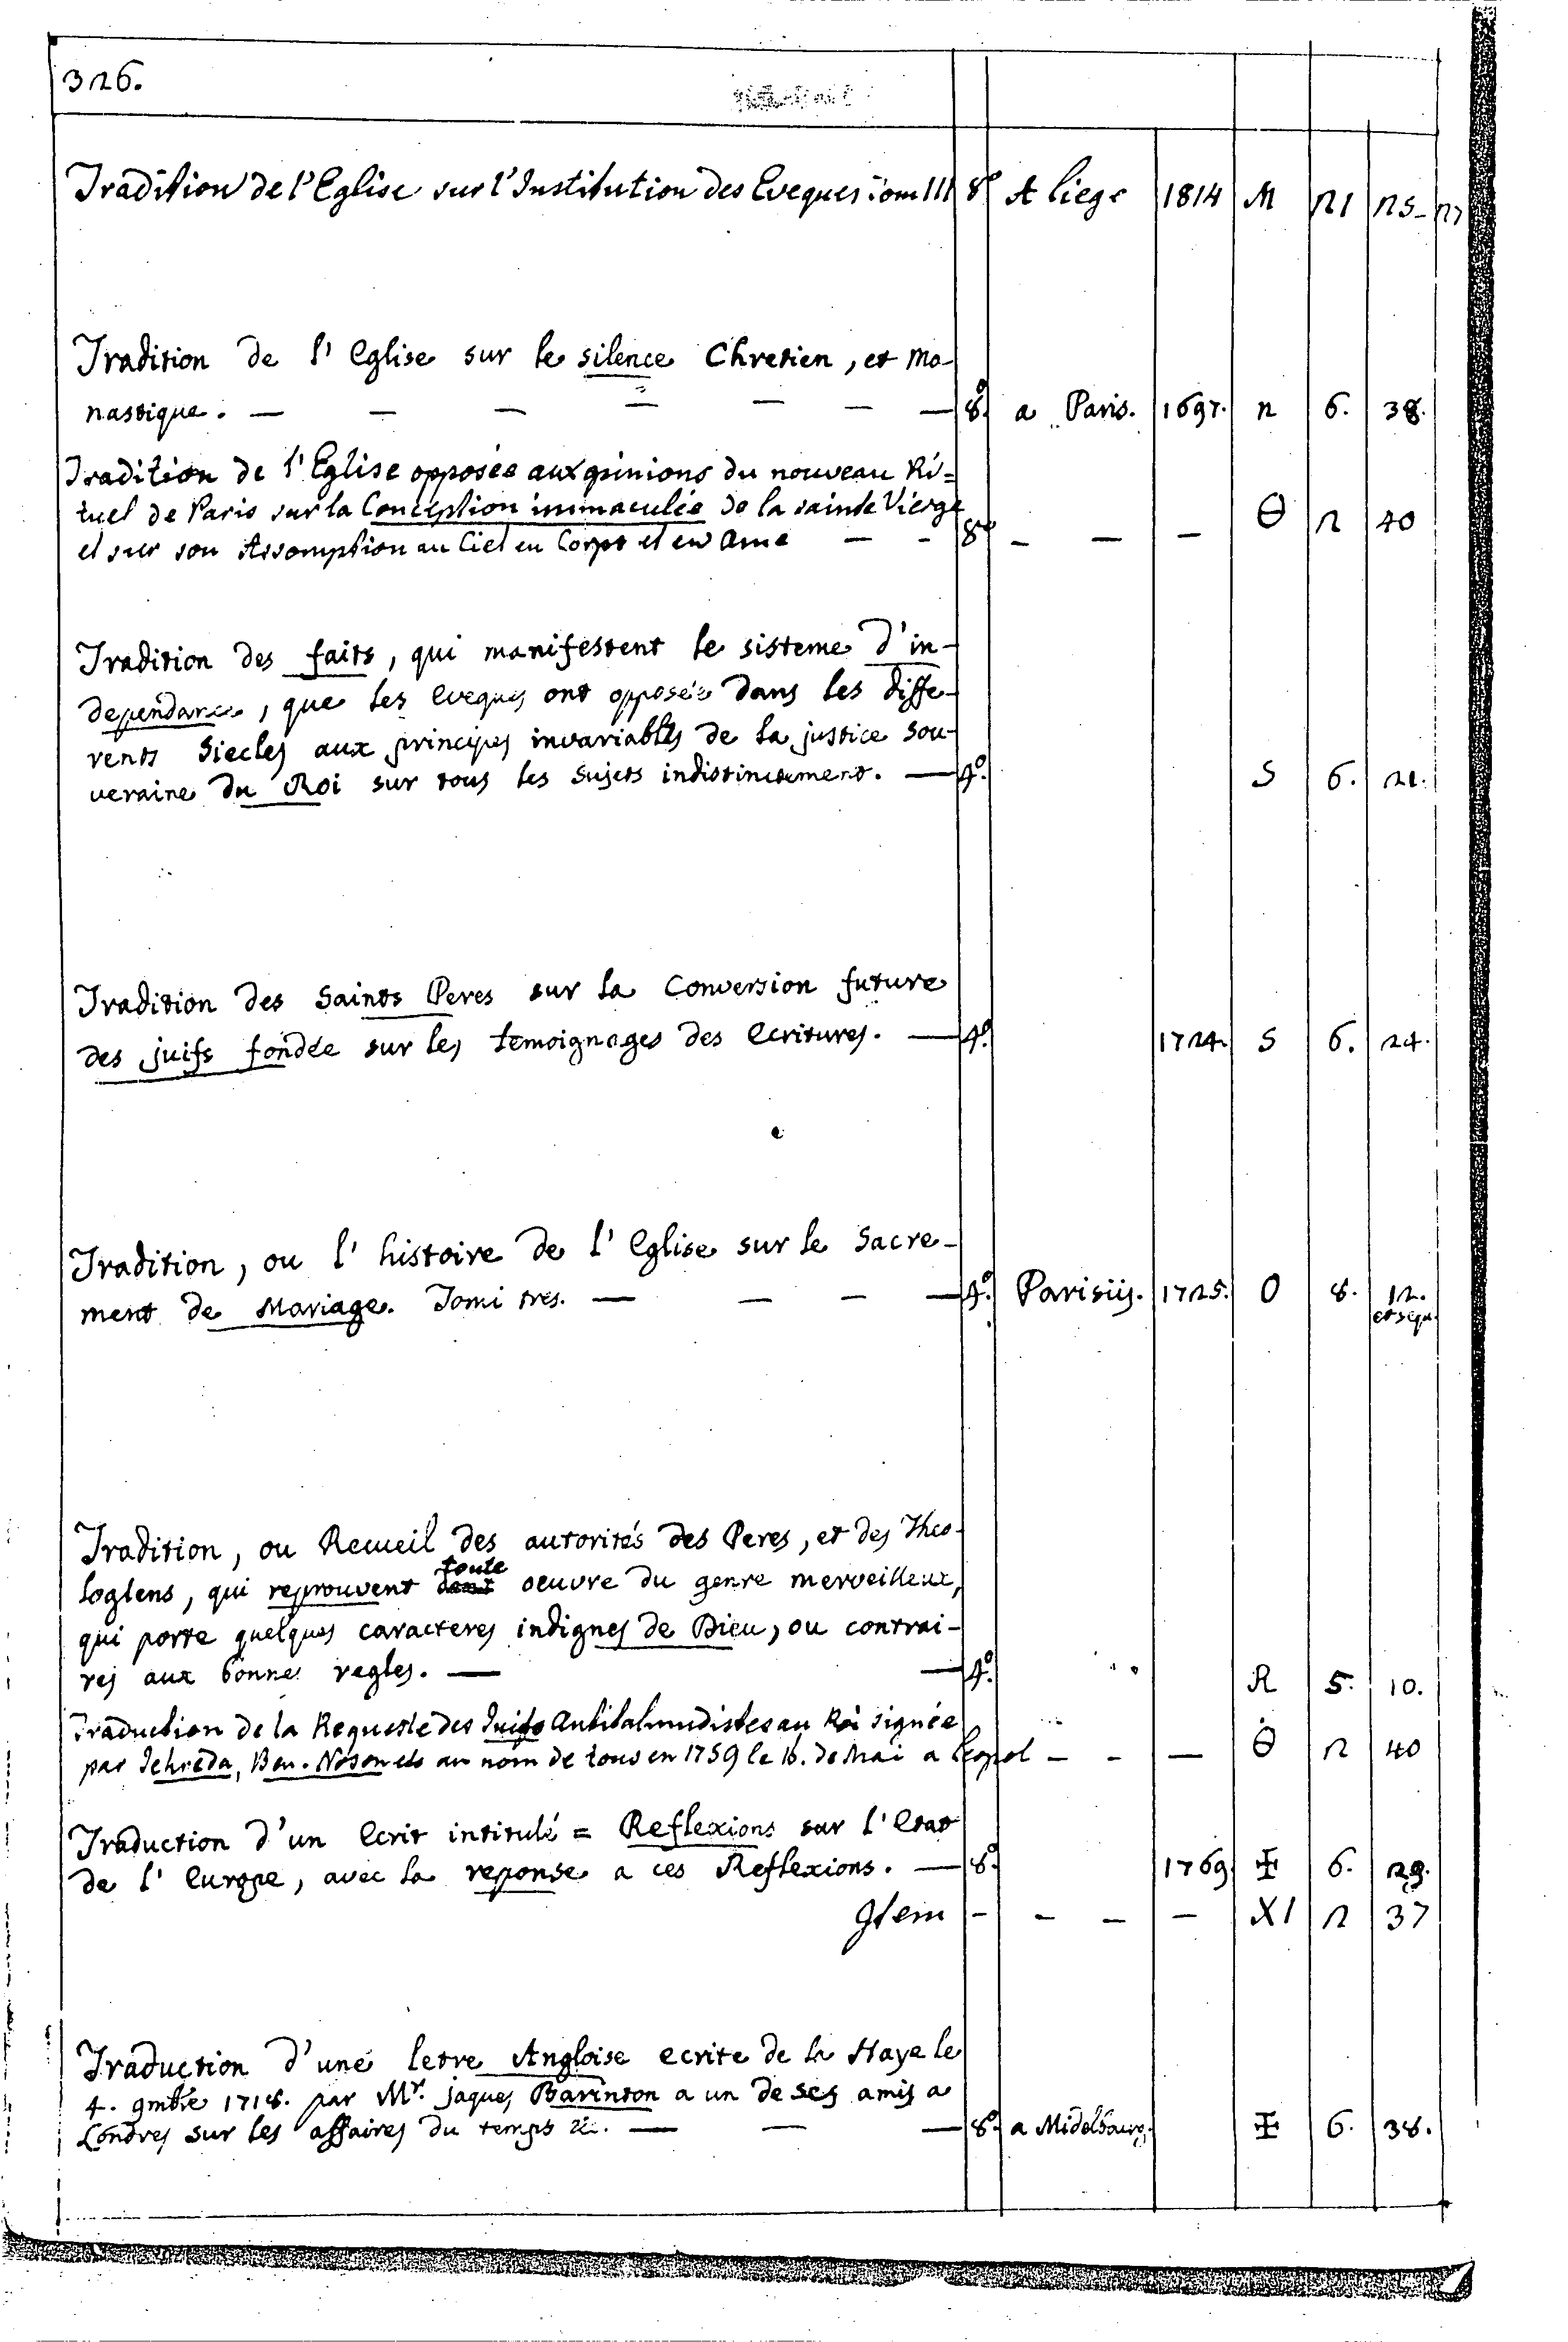 326.
Tradition de l'Eglise sur l'Institution des Eveques Tom III 8º A Liege 1814 M 21 25-27
Tradition de l' Eglise sur le silence Chretien, et mo-
nastique. — — — — — — — 8º. a Paris. 1697. n 6. 38.
Tradition de l'Eglise opposée aux opinions du nouveau Ri=
tuel de Paris sur la Conception immaculée de la sainte Vierge
et sur son Assomption au Ciel en Corps et en Ame — - 8º - — - Θ 2 40
Tradition des faits, qui manifestent le sisteme d'in-
dependance, que les eveques ont opposée dans les diffe-
rents Siecles aux principes invariables de la justice sou-
veraine du Roi sur tous les Sujets indistinctement. — 4º. S 6. 21.
Tradition des Saints Peres sur la Conversion future
des juifs fondée sur les temoignages des Ecritures. — 4º. 1724. S 6. 24.
Tradition, ou l' histoire de l' Eglise sur le Sacre-
ment de Mariage. Tomi tres. — — — — 4º. Parisiis. 1725. O 8. 12.
et sequ.
Tradition, ou Recueil des autorités des Peres, et des Theo-
toute
logiens, qui reprouvent oeuvre du genre merveilleux,
qui porte quelques caracteres indignes de Dieu, ou contrai-
res aux bonnes regles. — — 4º. R 5. 10.
Traduction de la Requeste des Juifs Antitalmudistes au Roi signée
par Jehreda, Ben. Noson etc au nom de tous en 1759 le 16. de Mai a Leopol - - — Θ 2 40
Traduction d'un Ecrit intitulé = Reflexions sur l'Etat
de l' Europe, avec la reponse a ces Reflexions. — 8º. 1769. 6. 29.
Item - - - - XI 2 37
Traduction d'une letre Angloise ecrite de la Haye le
4. 9mbre 1718. par Mr. Jaques Barinton a un de ses amis a
Londres sur les affaires du temps &c. — — — 8º. a Midelbourg. 6. 38.